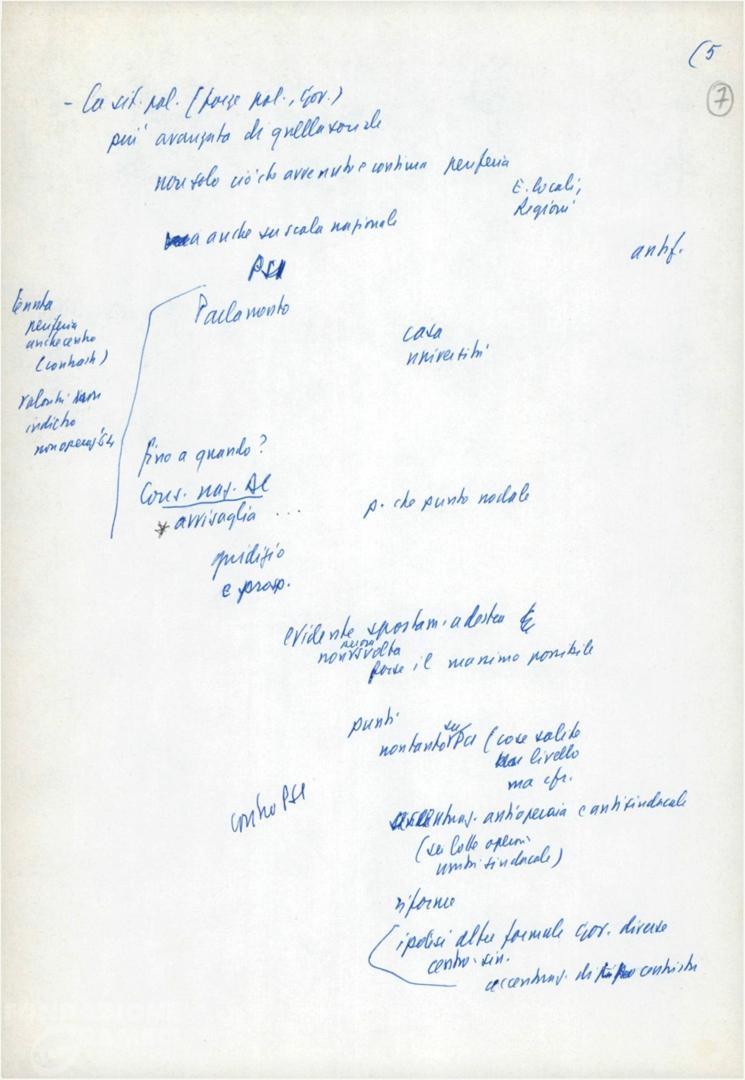 (5
7
- La sit. pol. (forze pol., Gov.)
più avanzata di quella sociale
non solo ciò che avvenuto e continua periferia
E. locali,
Regioni
ma anche su scala nazionale
antif.
PSI
Parlamento
Tenuta
periferia
anche centro
(contrasti)
casa
università
indietro
fino a quando?
Cons. naz. DC
* avvisaglia ...
p. che punto nodale
giudizio
e prosp.
evidente spostam. a destra
non svolta
forse il massimo possibile
punti
non tanto su PCI (cose solite
livello
ma cfr.
contro PSI
antioperaia e antisindacale
(su lotte operai
unità sindacale)
riforme
ipotesi altre formule Gov. diverse
centro-sin.
accentuaz. di tipo centrista